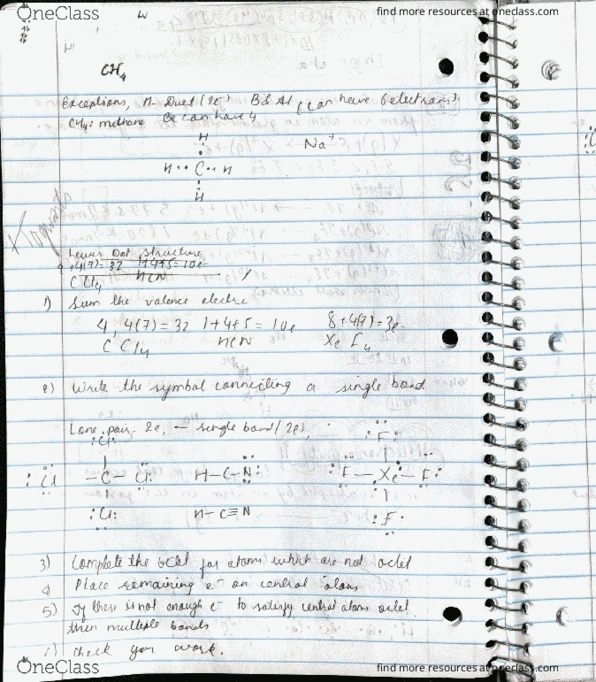 OneClass
find more resources at oneclass.com
CH4
Exceptions, H- Duet (2e-) B & Al (can have 6 electrons)
CH4: methane Be can have 4
H
Na+
H •• C •• H
H
Lewis Dot Structure
4+4(7)=32 1+4+5=10e-
CCl4 HCN
1) Sum the valence electre
4, 4(7)=32 1+4+5=10e 8+4(7)=3e-
CCl4 HCN XeF4
2) Write the symbol connecting a single bond
Lone pair 2e, — single bond (2e),
:Cl: :F:
:Cl —C—Cl: H—C—N: :F—Xe—F:
:Cl: H—C≡N :F:
3) Complete the octet for atoms which are not octet
4 Place remaining e- on central atom
5) If there is not enough e- to satisfy central atoms octet
then multiple bonds
Check your work.
OneClass
find more resources at oneclass.com